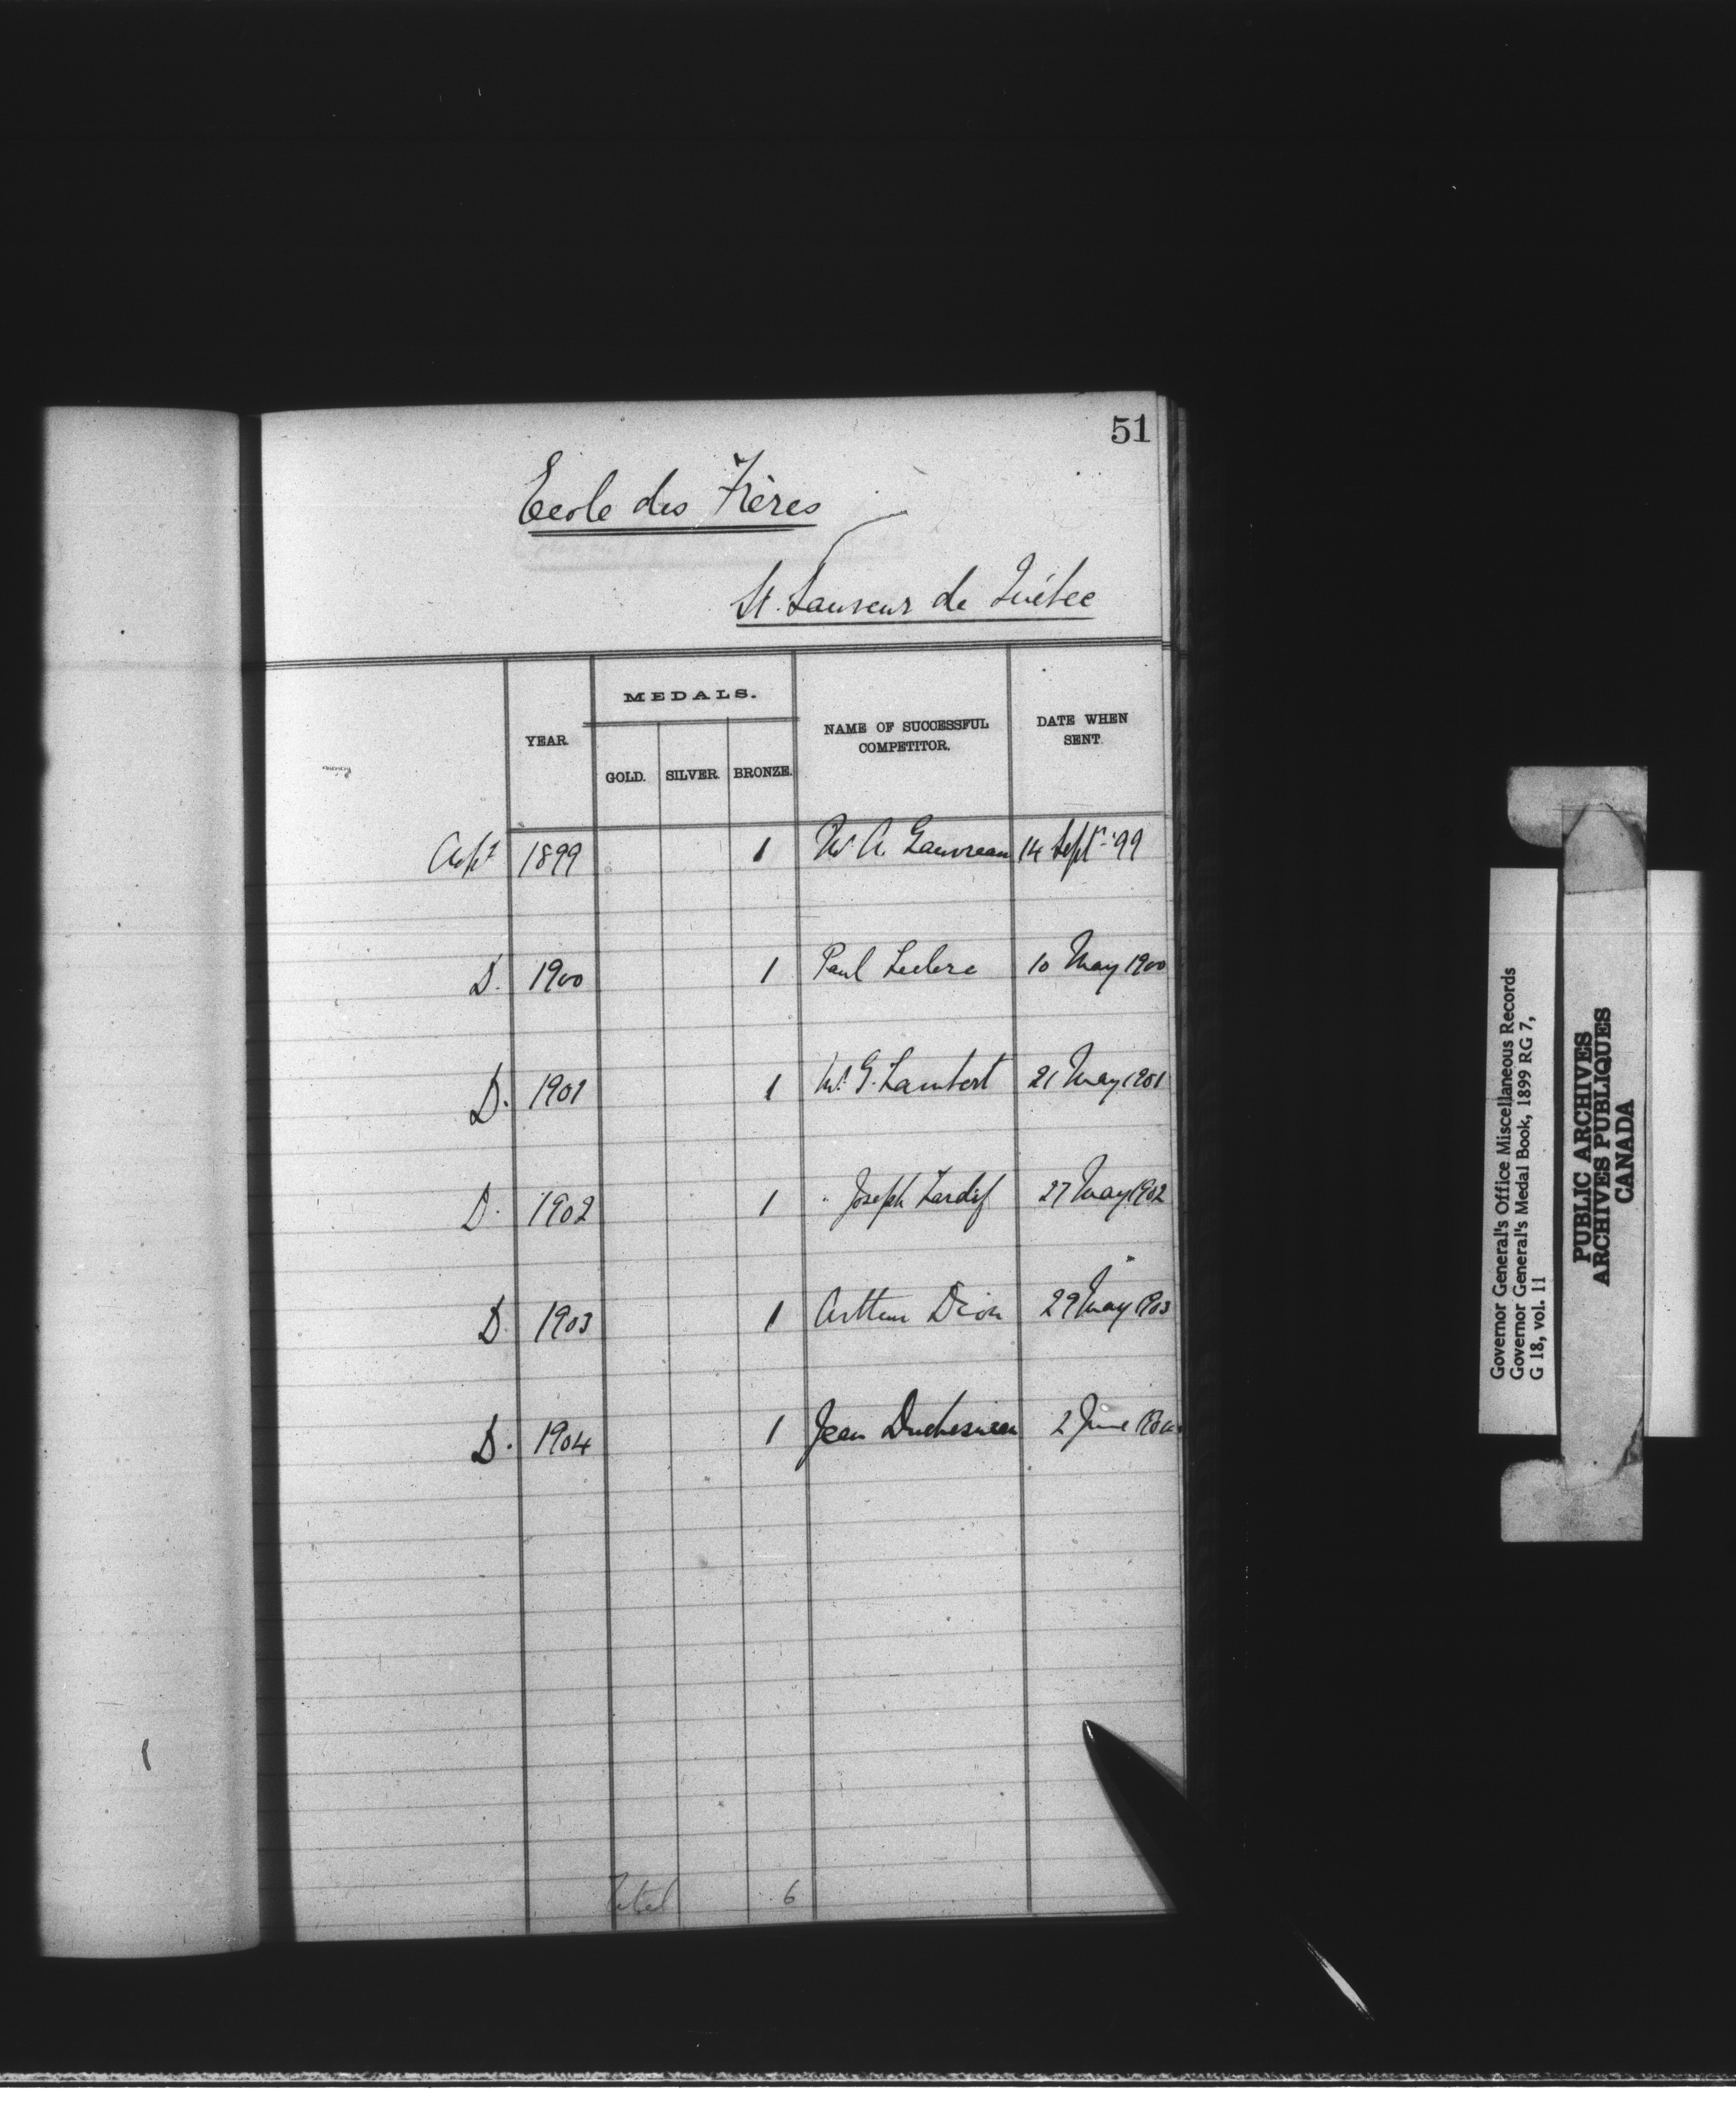 51
Ecole des Frères
St. Sauveur de Québec
YEAR.
MEDALS.
GOLD. SILVER. BRONZE.
NAME OF SUCCESSFUL
COMPETITOR.
DATE WHEN
SENT.
1899 1 A. Gauvreau 14 Sept. '99
D. 1900 1 Paul Leclerc 10 May 1900
D. 1901 1 G. Lambert 21 May 1901
D. 1902 1 " Joseph Tardif 27 May 1902
D. 1903 1 Arthur Dion 29 May 1903
D. 1904 1 Jean Duchesneau 2 June 1904
Total 6
Governor General's Office Miscellaneous Records
Governor General's Medal Book, 1899 RG 7,
G 18, vol. 11
PUBLIC ARCHIVES
ARCHIVES PUBLIQUES
CANADA